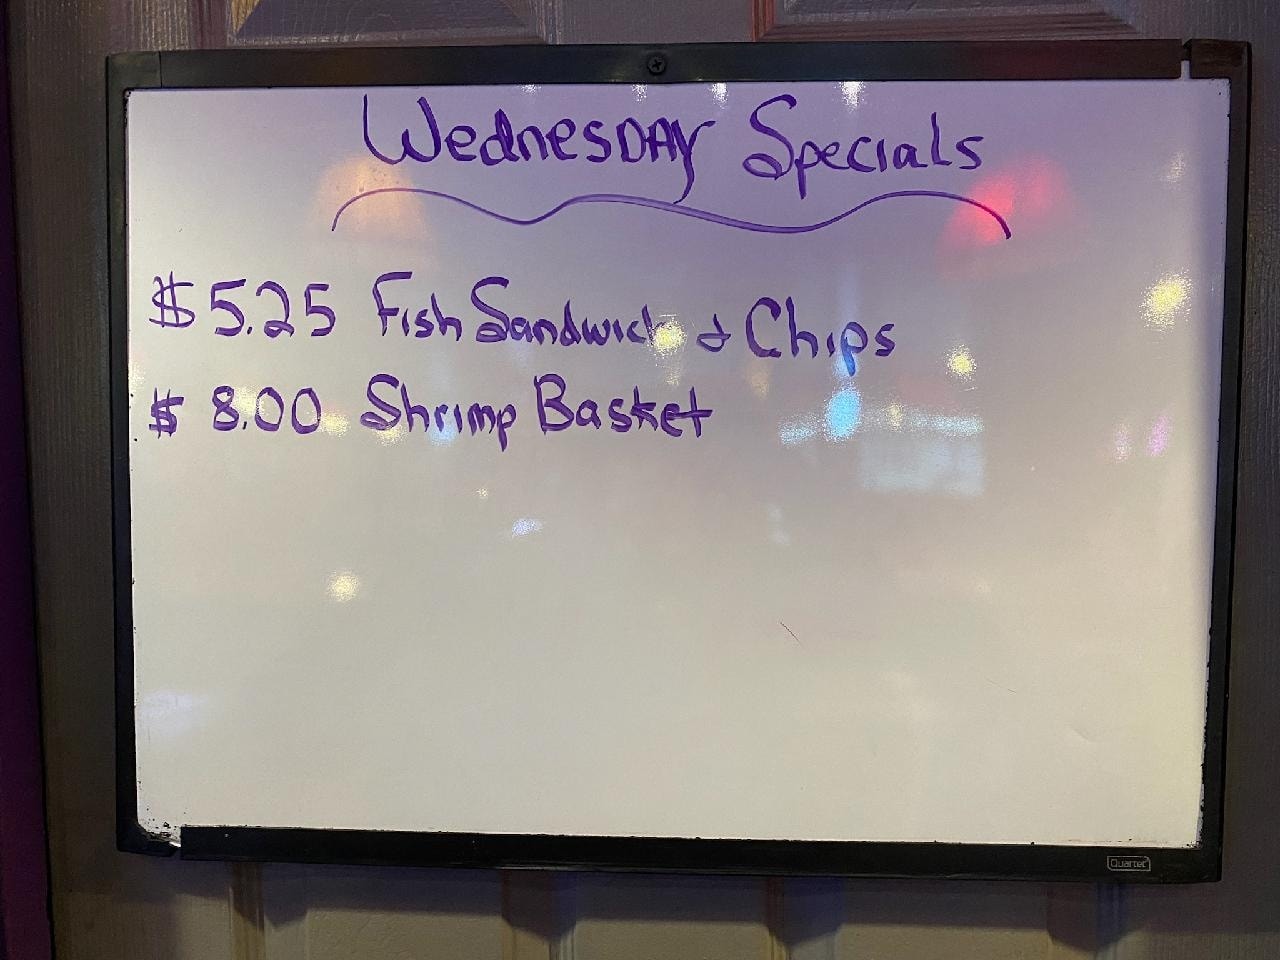 WednesDAY Specials
$ 5.25 Fish Sandwich & Chips
$ 8.00 Shrimp Basket
Quartet